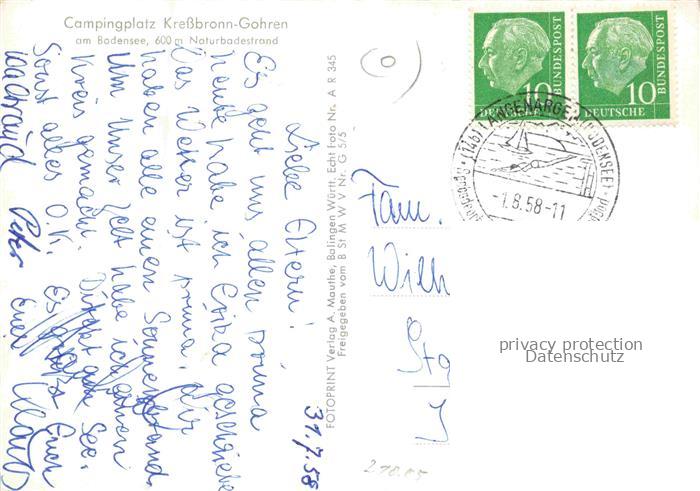 Campingplatz Kreßbronn-Gohren
am Bodensee, 600 m Naturbadestrand
31.7.58
Liebe Eltern!
Es geht uns allen prima
Heute habe ich Erika geschrieben
Das Wetter ist prima. Wir
haben alle einen Sonnenbrand.
Um unser Zelt habe ich einen
Kreis gemacht. Direkt am See.
Sonst alles O.K. Es grüßt Euch
Waltraud Peter Euer Klaus
FOTOPRINT Verlag A. Mauthe, Balingen Württ, Echt Foto Nr. A R 345
Freigegeben vom B St M W V Nr. G 5/5
10 DEUTSCHE BUNDESPOST
10 DEUTSCHE BUNDESPOST
(14b) LANGENARGEN (BODENSEE)
-1.8.58-11
Fam.
Wilh
Stg
privacy protection
Datenschutz